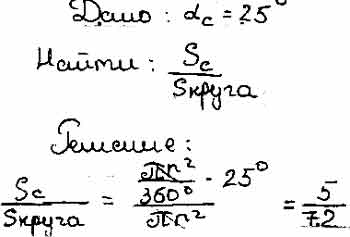 Дано: αc = 25°
Найти: Sc / Sкруга
Решение:
Sc / Sкруга = (πr² / 360° · 25°) / πr² = 5 / 72